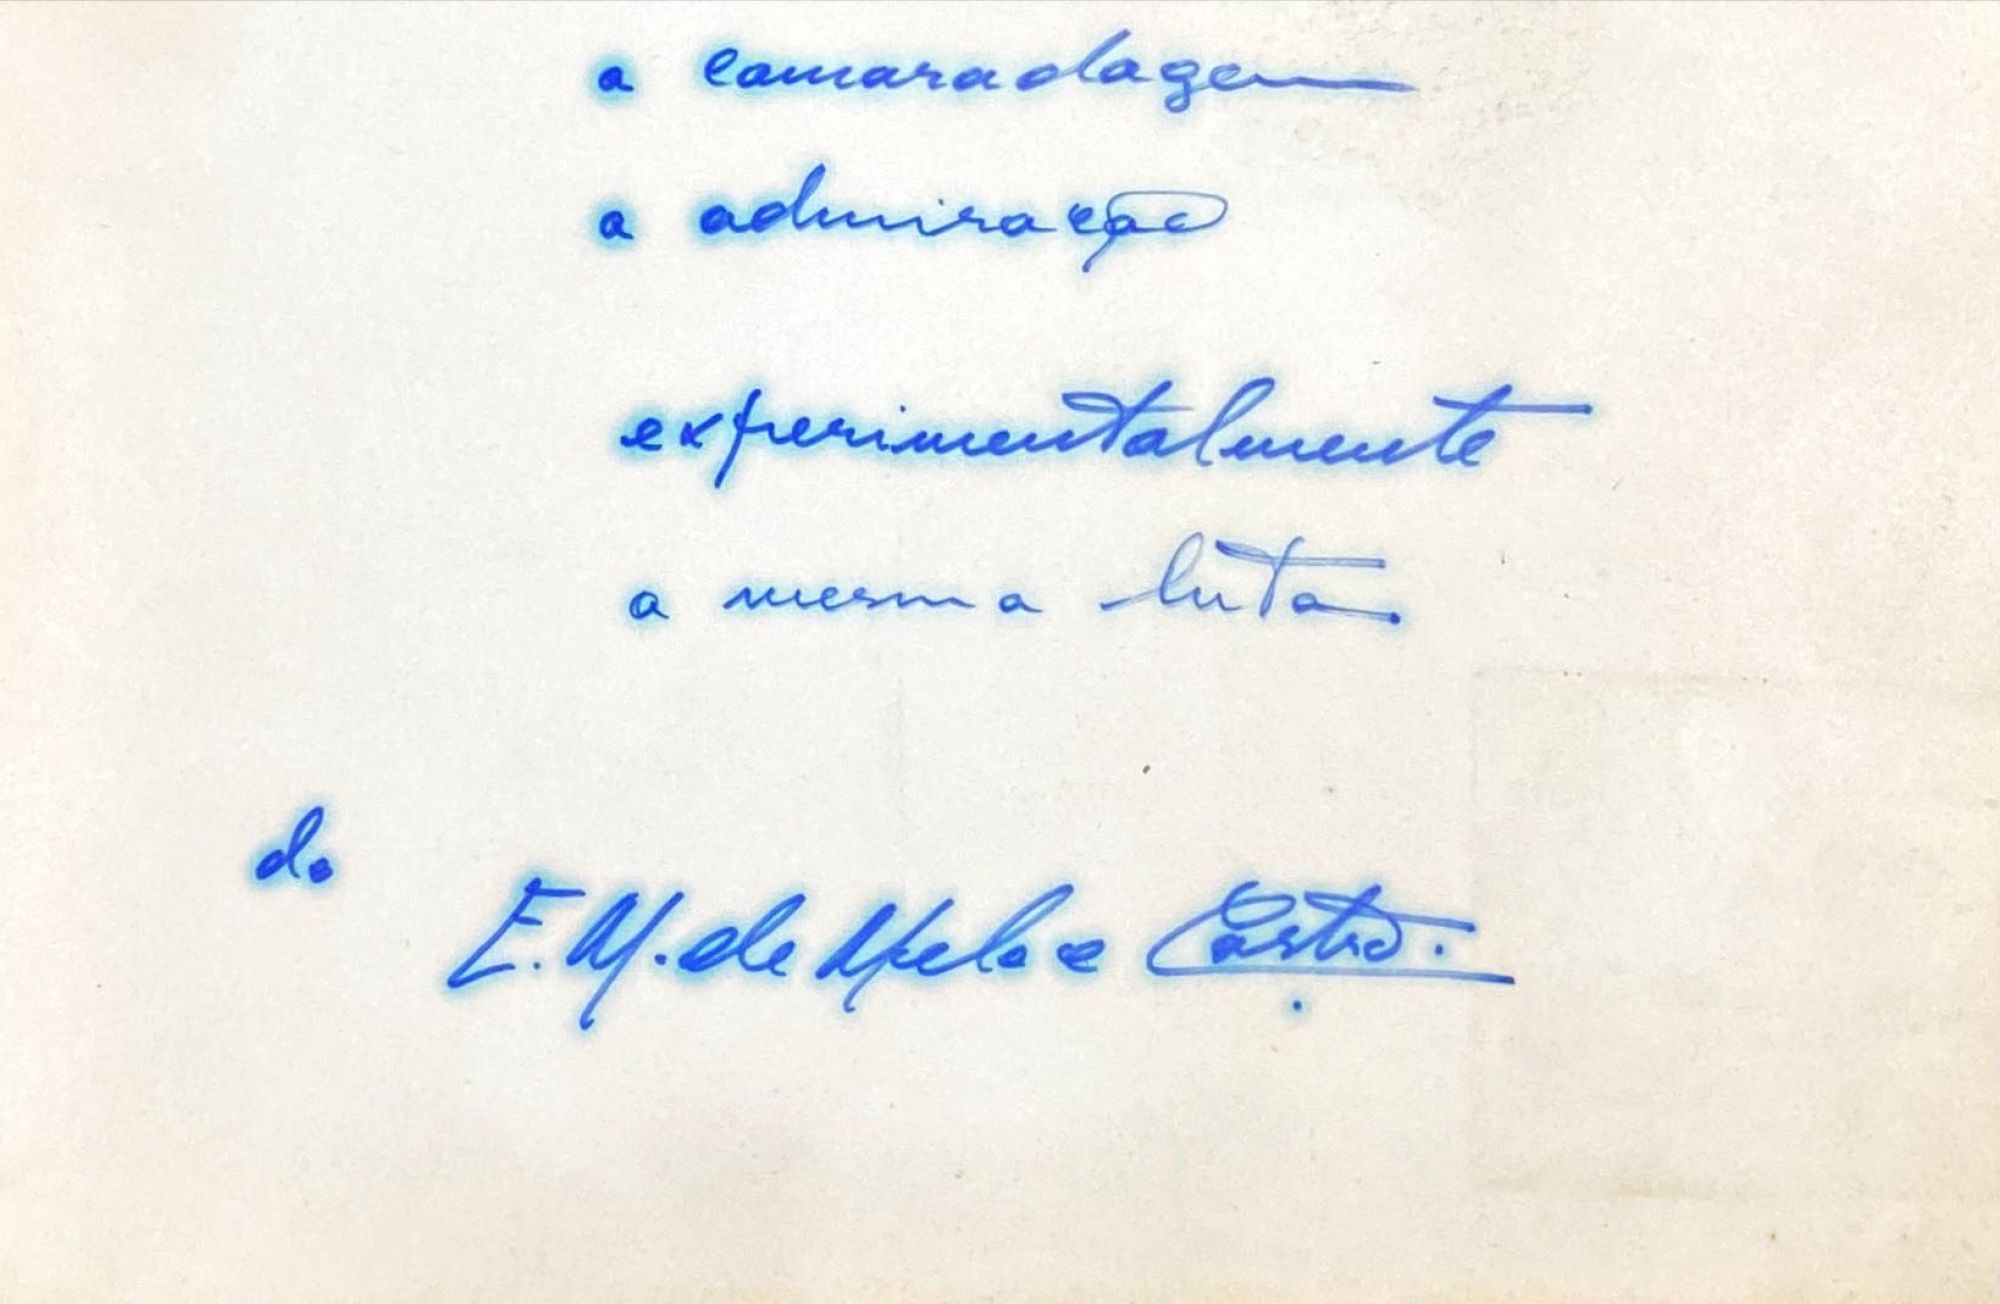 a camaradagem
a admiração
experimentalmente
a mesma luta.
do
E. M. de Melo e Castro.